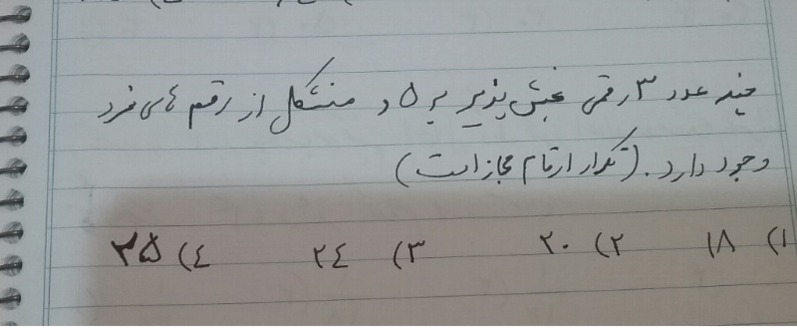 چند عدد ۳ رقمی بخش پذیر بر ۵ و متشکل از رقم های فرد
وجود دارد. (تکرار ارقام مجاز است)
۱) ۱۸ ۲) ۲۰ ۳) ۲٤ ٤) ۲۵